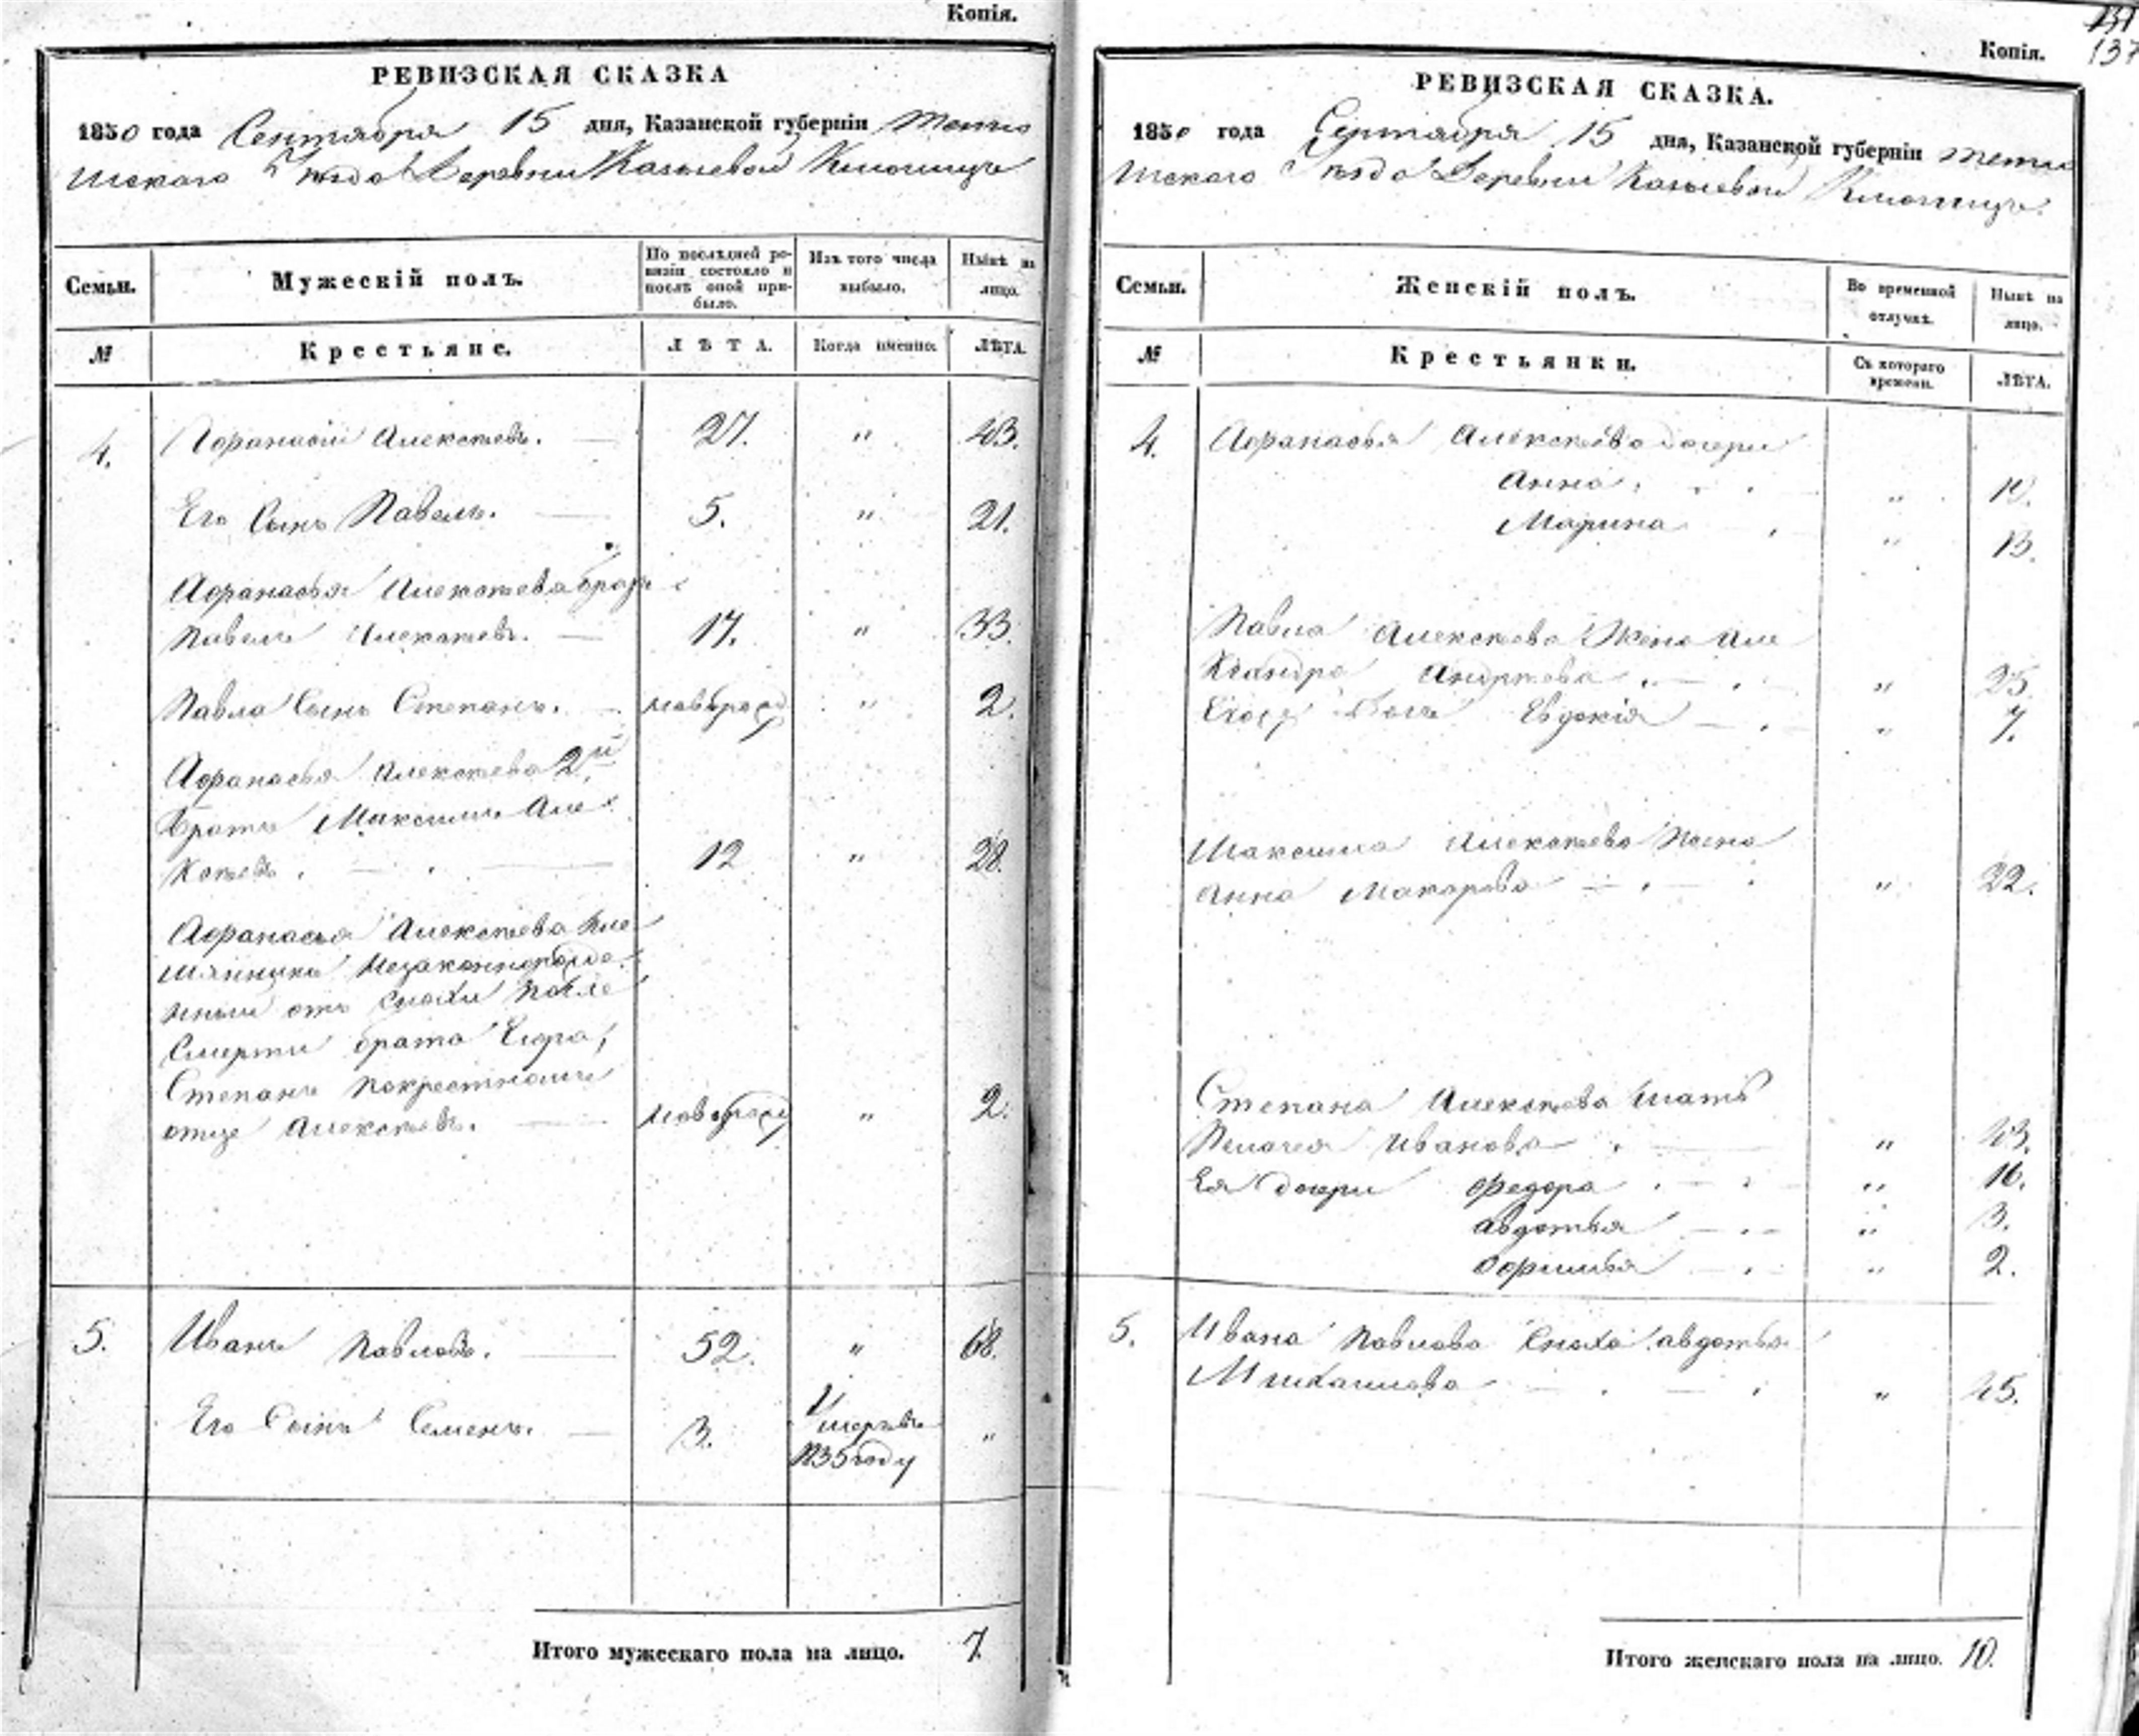 Копія.
РЕВИЗСКАЯ СКАЗКА
1850 года Сентября 15 дня, Казанской губерніи Тетю
шскаго Уѣзда Деревни
Семьи.
Мужескій полъ.
По послѣдней ре-
визіи состояло и
послѣ оной при-
было.
Изъ того числа
выбыло.
Нынѣ на
лицо.
№
Крестьяне.
ЛѢТА.
Когда именно.
ЛѢТА.
4. Афанасій Алексѣевъ. 27. " 43.
Его Сынъ Павелъ. 5. " 21.
Афанасья Алексѣева братъ
Павелъ Алексѣевъ. 17. " 33.
Павла Сынъ Степанъ. новорожд " 2.
Афанасья Алексѣева 2й
братъ Максимъ Але
ксѣевъ. 12 " 28.
Афанасья Алексѣева пле
мянникъ незаконнорожде
нный отъ снохи после
Смерти брата Егора,
Степанъ покрестному
отце Алексѣевъ. новорожд " 2.
5. Иванъ Павловъ. 52. " 68.
Его Сынъ Семенъ. 3. Умеръ въ "
1835 году
Итого мужескаго пола на лицо. 7.
137
137
Копія.
РЕВИЗСКАЯ СКАЗКА.
1850 года Сентября 15 дня, Казанской губерніи Тетю
шскаго Уѣзда Деревни
Семьи.
Женскій полъ.
Во временной
отлучкѣ.
Нынѣ на
лицо.
№
Крестьянки.
Съ котораго
времени.
ЛѢТА.
4. Афанасья Алексѣева дочери
Анна " 10.
Марина " 13.
Павла Алексѣева Жена Але
ксандра Андрѣева " 25.
Дочь Евдокія " 7.
Максима Алексѣева Жена
Анна Макарова " 22.
Степана Алексѣева мать
Пелагея Иванова " 43.
Ея дочери Федора " 16.
Авдотья " 3.
Офимья " 2.
5. Ивана Павлова Сноха Авдотья
Михайлова " 45.
Итого женскаго пола на лицо. 10.